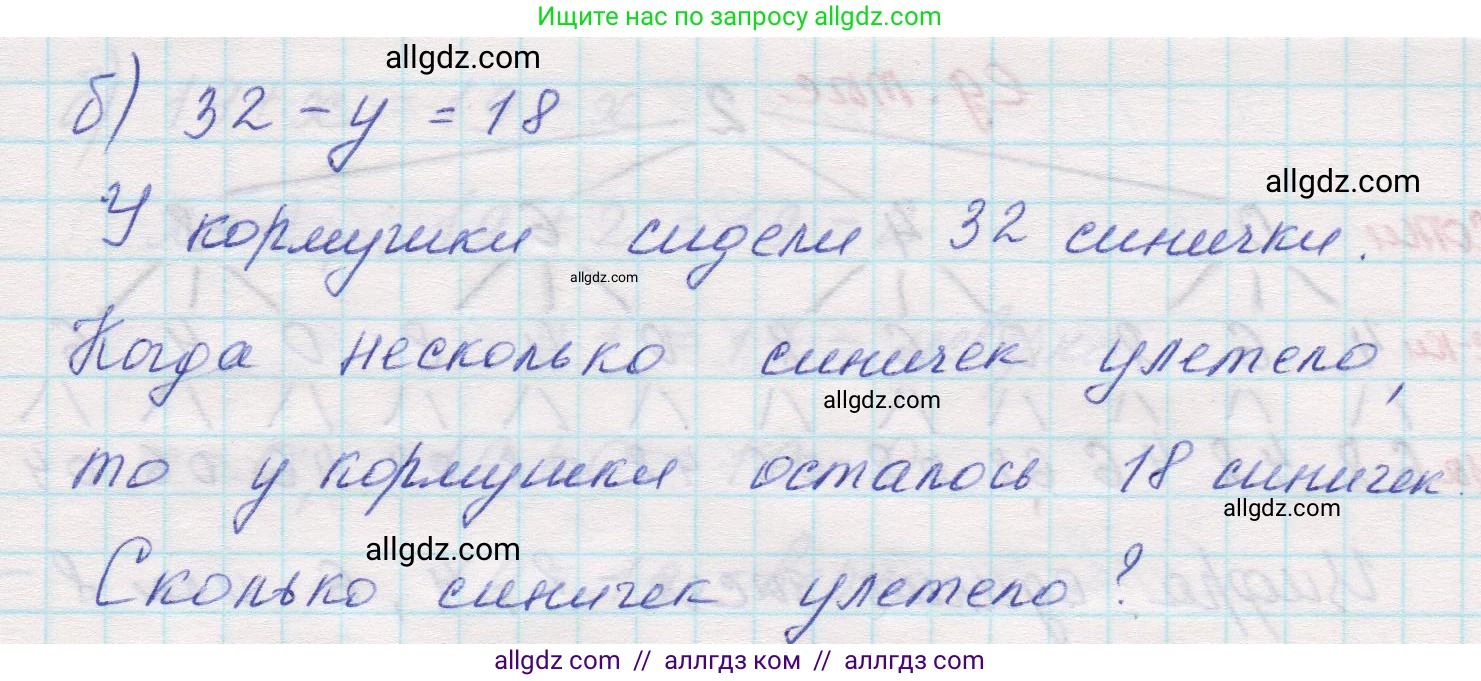 Ищите нас по запросу allgdz.com
allgdz.com
б) 32 - у = 18
allgdz.com
У кормушки сидели 32 синички.
allgdz.com
Когда несколько синичек улетело,
allgdz.com
то у кормушки осталось 18 синичек.
allgdz.com
allgdz.com
Сколько синичек улетело?
allgdz com // аллгдз ком // аллгдз com